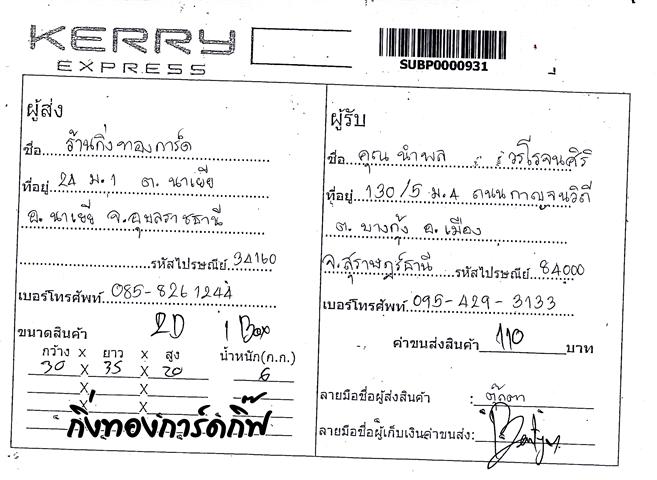 KERRY
EXPRESS
SUBP0000931
ผู้ส่ง
ชื่อ ร้านกิ่งทองการ์ด
ที่อยู่ 24 ม.1 ต. นาเยีย
อ. นาเยีย จ.อุบลราชธานี
รหัสไปรษณีย์ 34160
เบอร์โทรศัพท์ 085-826 1244
ขนาดสินค้า 2D 1 Box
กว้าง x ยาว x สูง น้ำหนัก(ก.ก.)
30 X 35 X 20 6
X X
X X
กิ่งทองการ์ดกิ๊ฟ
ผู้รับ
ชื่อ คุณ นำพล วรโรจนศิริ
ที่อยู่ 130/5 ม.4 ถนนกาญจนวิถี
ต. บางกุ้ง อ.เมือง
จ.สุราษฎร์ธานี รหัสไปรษณีย์ 84000
เบอร์โทรศัพท์ 095-429-3133
ค่าขนส่งสินค้า 110 บาท
ลายมือชื่อผู้ส่งสินค้า : ตุ๊กตา
ลายมือชื่อผู้เก็บเงินค่าขนส่ง: